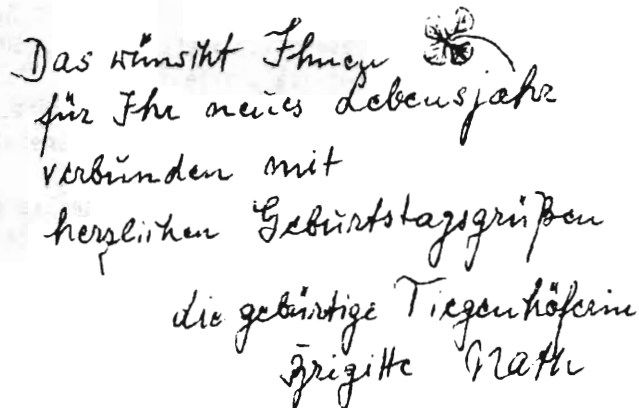 Das wünscht Ihnen
für Ihr neues Lebensjahr
verbunden mit
herzlichen Geburtstagsgrüßen
die gebürtige Tiegenhöferin
Brigitte Nath